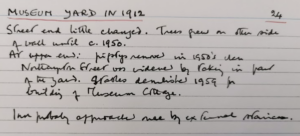 MUSEUM YARD IN 1912 24
Street end little changed. Trees grew on other side
of wall until c. 1950.
At upper end: removed in 1950's when
Northampton Street was widened by taking in part
of the yard. Stables demolished 1959 for
building of Museum Cottage.
Inn probably approached by external staircase.